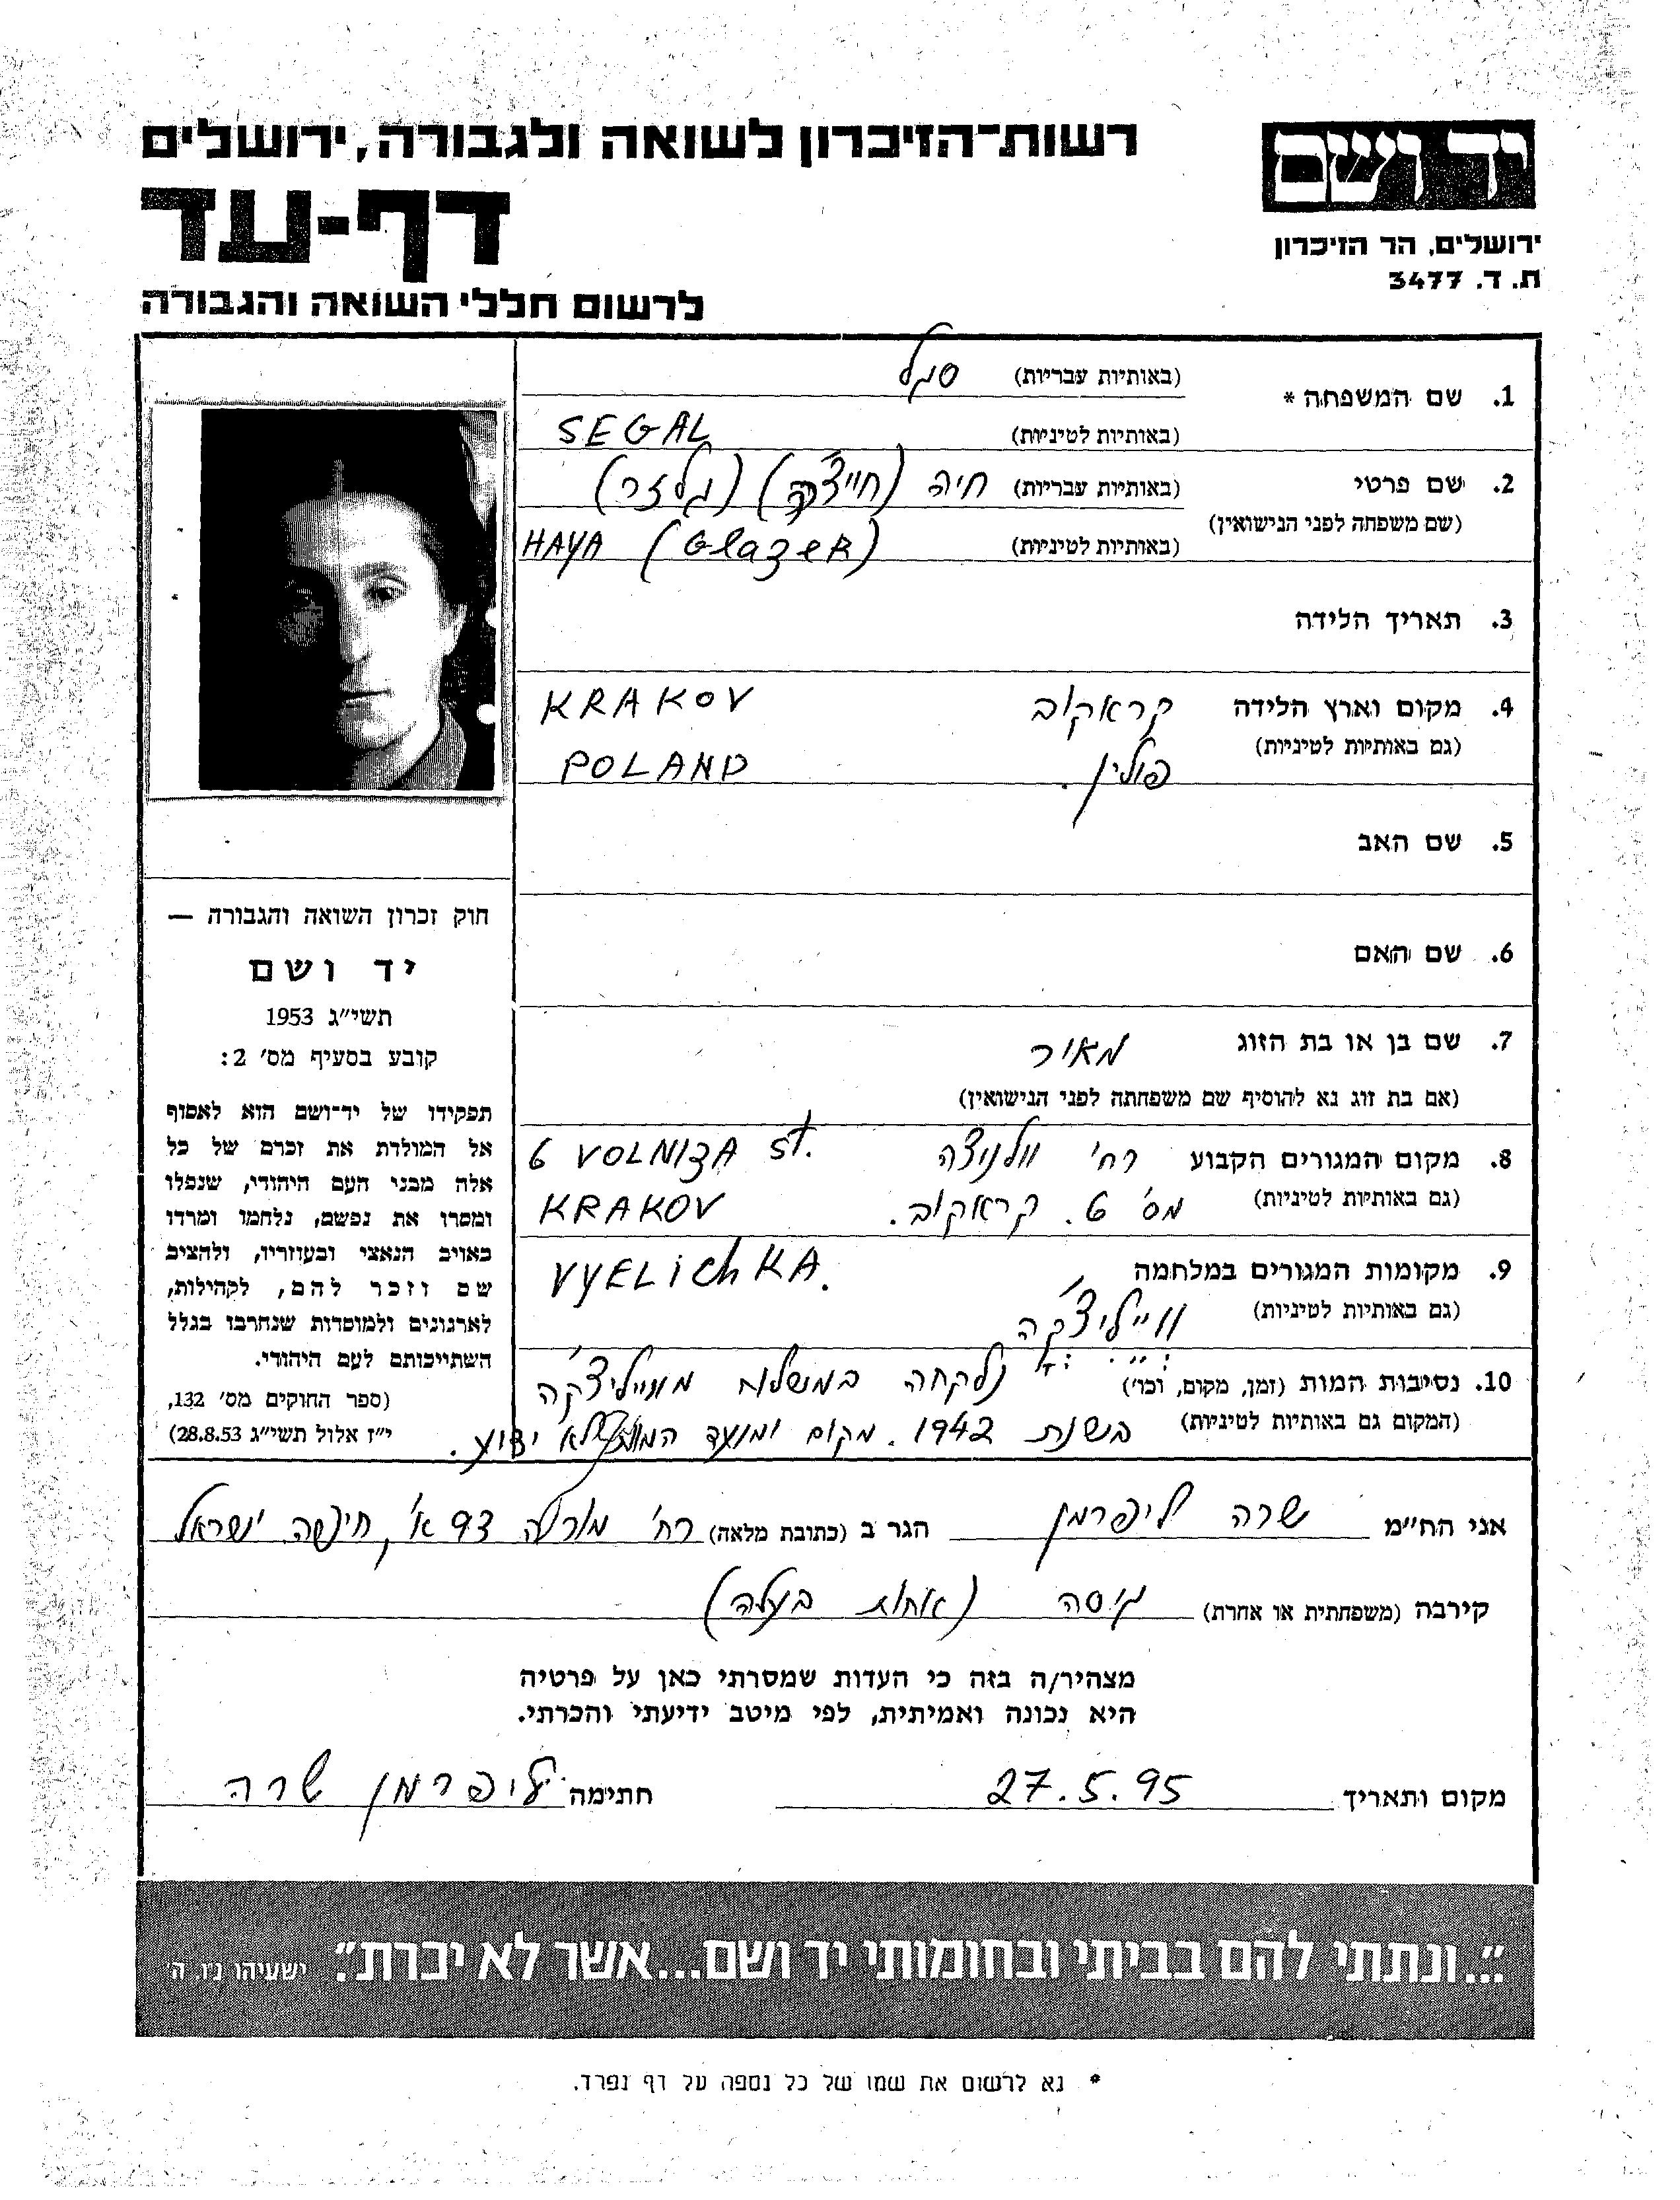 יד ושם
ירושלים, הר הזיכרון
ת. ד. 3477
רשות-הזיכרון לשואה ולגבורה, ירושלים
דף-עד
לרשום חללי השואה והגבורה
1. שם המשפחה * (באותיות עבריות) סגל
(באותיות לטיניות) SEGAL
2. שם פרטי (באותיות עבריות) חיה (חייצ'קה) (גלזר)
(שם משפחה לפני הנישואין)
(באותיות לטיניות) HAYA (GlazeR)
3. תאריך הלידה
4. מקום וארץ הלידה קראקוב KRAKOV
(גם באותיות לטיניות) פולין. POLAND
5. שם האב
6. שם האם
7. שם בן או בת הזוג מאיר
(אם בת זוג נא להוסיף שם משפחתה לפני הנישואין)
8. מקום המגורים הקבוע רח' וולניצה 6 VOLNIZA st.
(גם באותיות לטיניות) מס' 6. קראקוב. KRAKOV
9. מקומות המגורים במלחמה VYELichKA.
(גם באותיות לטיניות) ווייליצ'קה
10. נסיבות המות (זמן, מקום, וכו') נלקחה במשלוח מווייליצ'קה
(המקום גם באותיות לטיניות) בשנת 1942. מקום ומועד המוות לא ידוע.
חוק זכרון השואה והגבורה —
יד ושם
תשי"ג 1953
קובע בסעיף מס' 2:
תפקידו של יד-ושם הוא לאסוף
אל המולדת את זכרם של כל
אלה מבני העם היהודי, שנפלו
ומסרו את נפשם, נלחמו ומרדו
באויב הנאצי ובעוזריו, ולהציב
שם וזכר להם, לקהילות,
לארגונים ולמוסדות שנחרבו בגלל
השתייכותם לעם היהודי.
(ספר החוקים מס' 132,
י"ז אלול תשי"ג 28.8.53)
אני הח"מ שרה ליפרמן הגר ב (כתובת מלאה) רח' מוריה 93 א', חיפה ישראל
קירבה (משפחתית או אחרת) גיסה (אחות בעלה)
מצהיר/ה בזה כי העדות שמסרתי כאן על פרטיה
היא נכונה ואמיתית, לפי מיטב ידיעתי והכרתי.
מקום ותאריך 27.5.95 חתימה ליפרמן שרה
"...ונתתי להם בביתי ובחומותי יד ושם...אשר לא יכרת". ישעיהו נ"ו, ה'
* נא לרשום את שמו של כל נספה על דף נפרד.